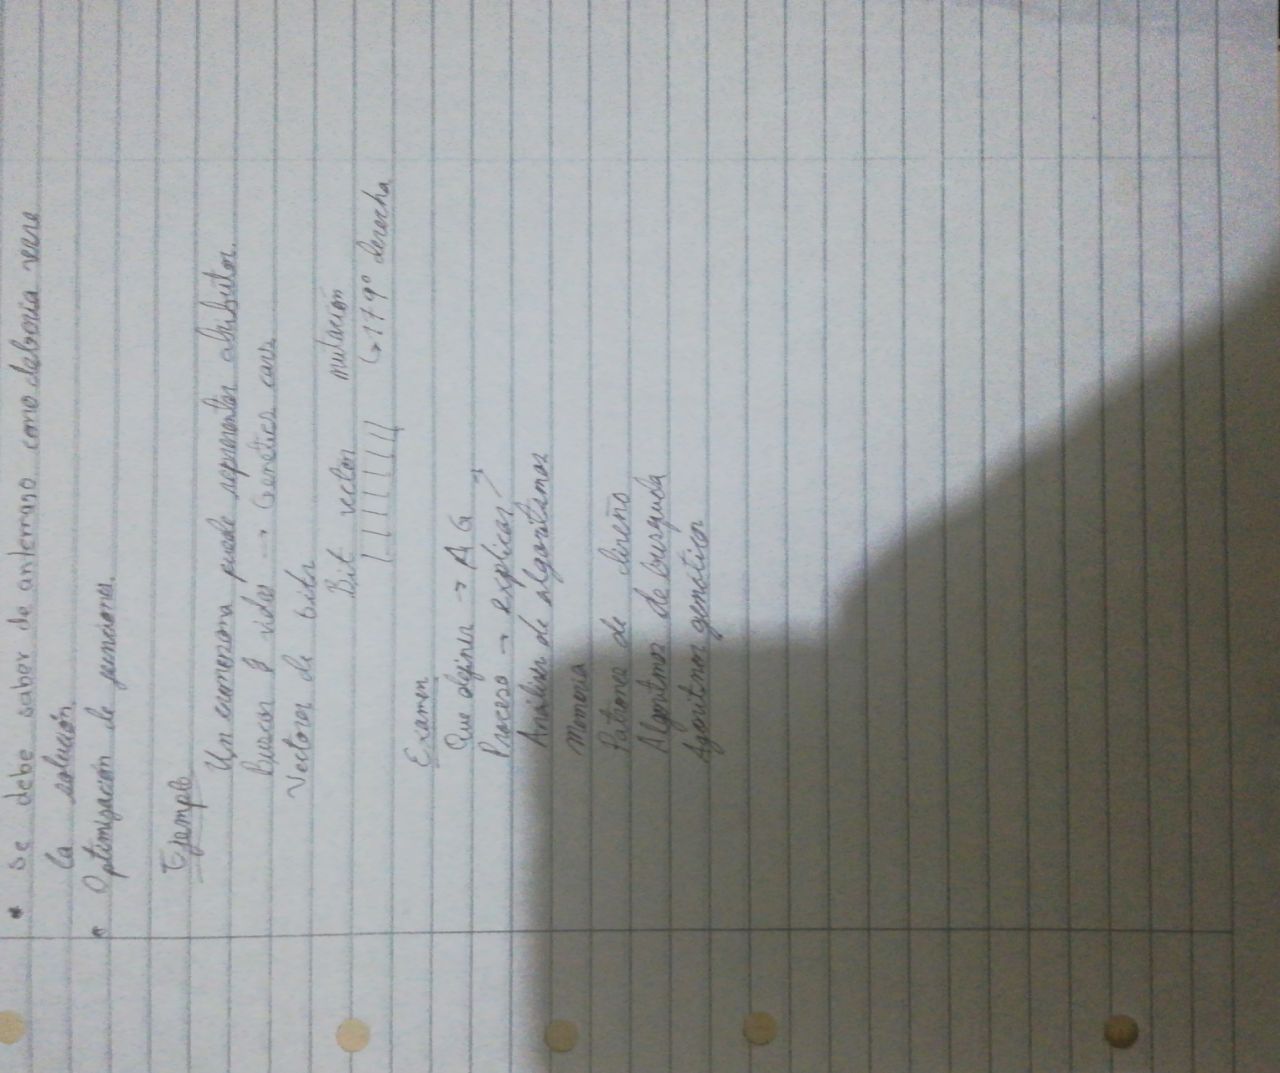 • Se debe saber de antemano como deberia verse
la solución.
• Optimización de funciones.
Ejemplo
Un cromosoma puede representar atributos.
Buscar video → Genetics cars
Vectores de bits
Bit vector mutación
derecha
Examen
Que define → A G
Proceso → explicar
Análisis de algoritmos
Memoria
Patrones de diseño
Algoritmos de busqueda
Algoritmos genéticos